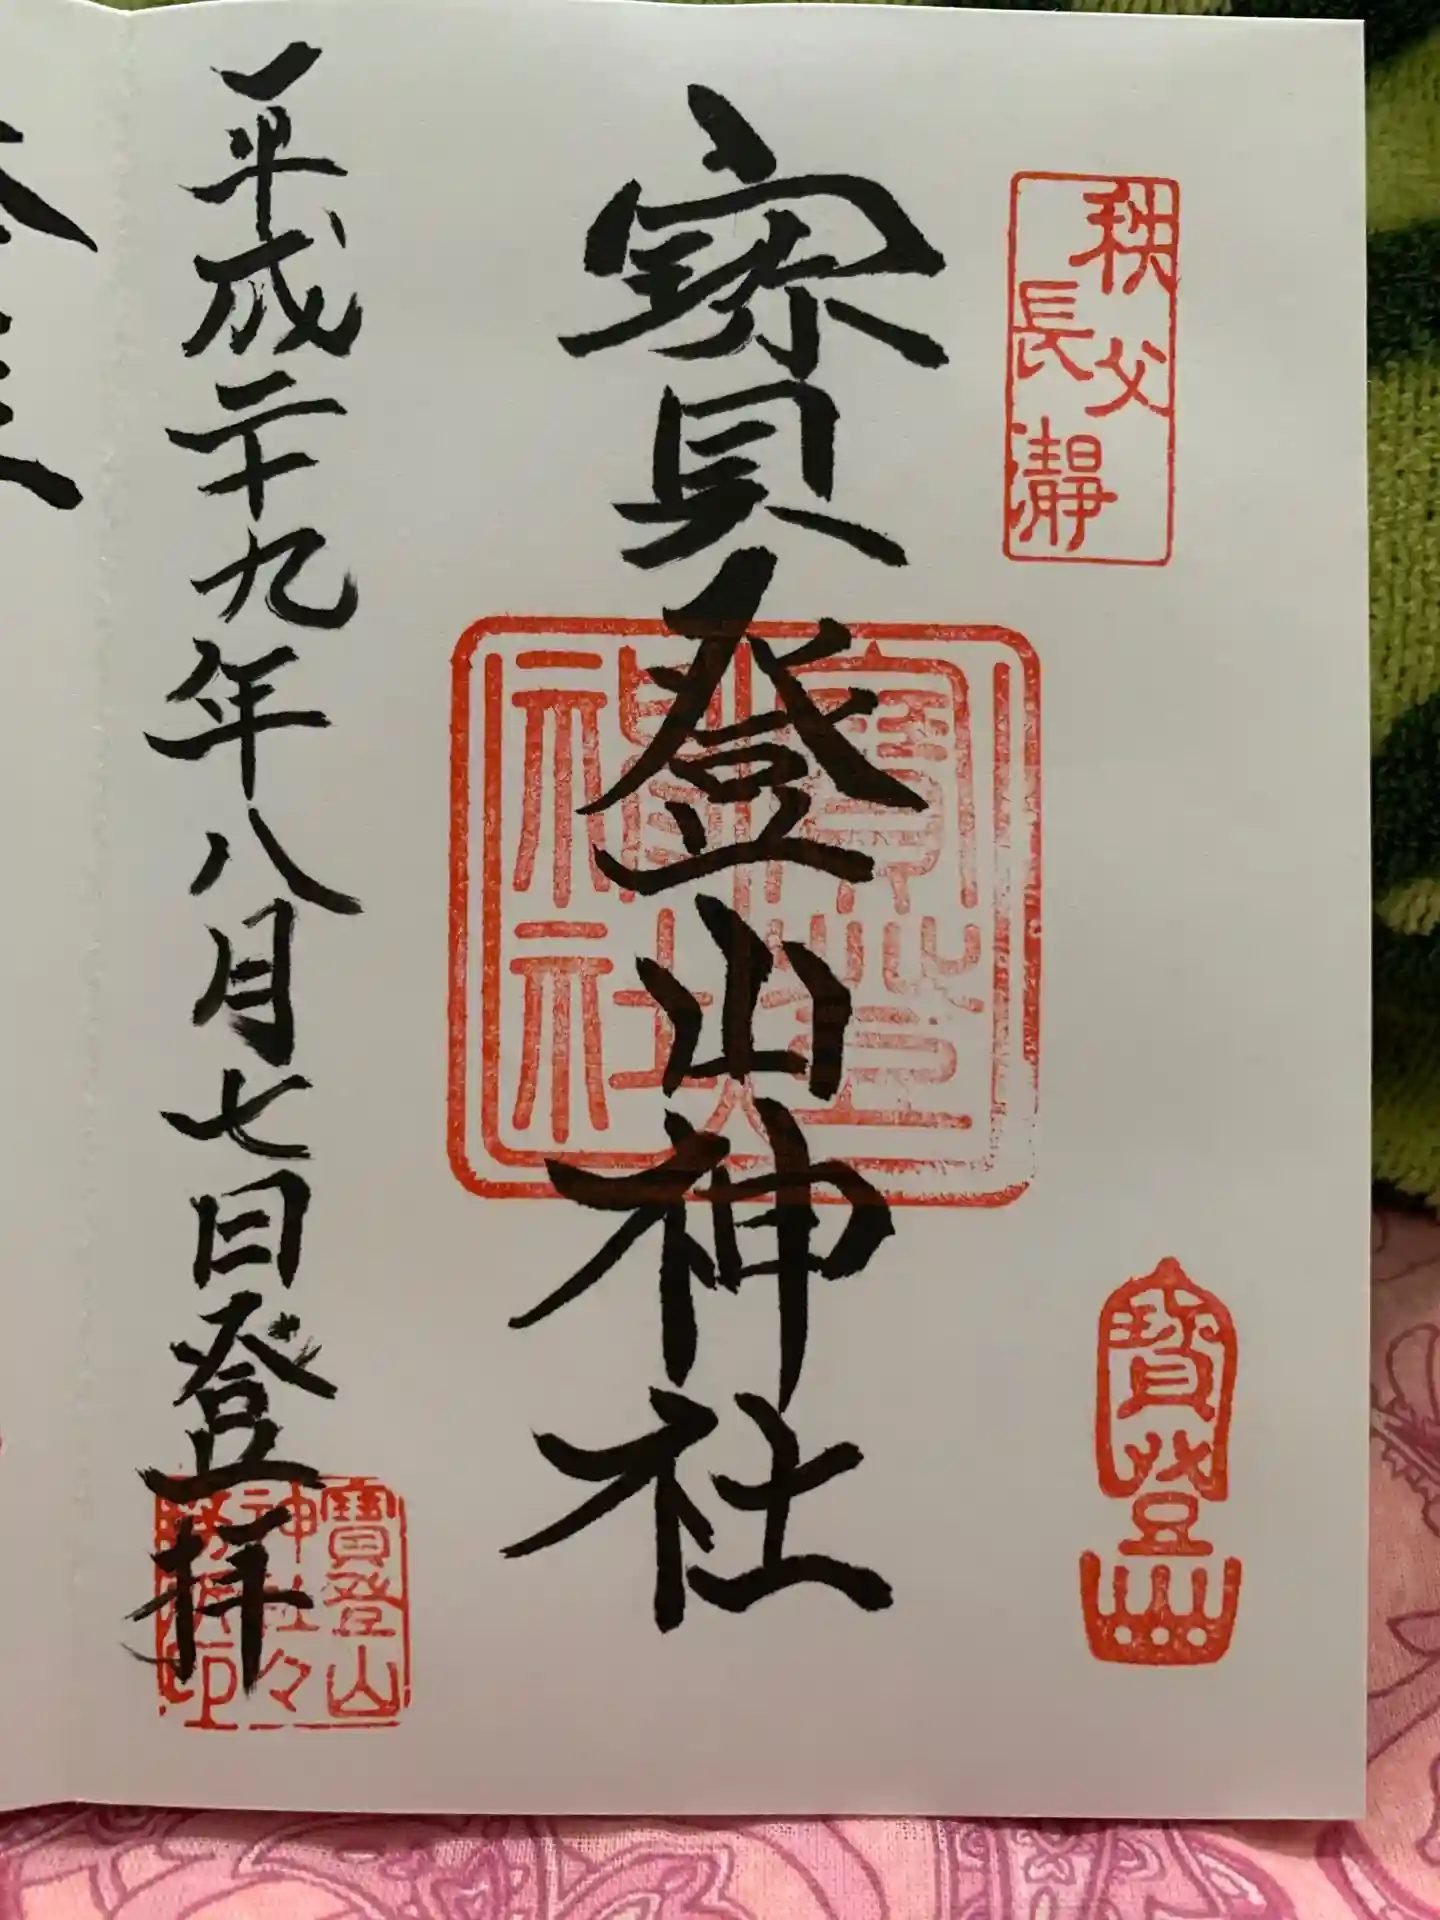 秩父
長瀞
寳登山
寳登山神社
寳登山
神社
平成二十九年八月七日登拝
寳登山
神社々
務所印